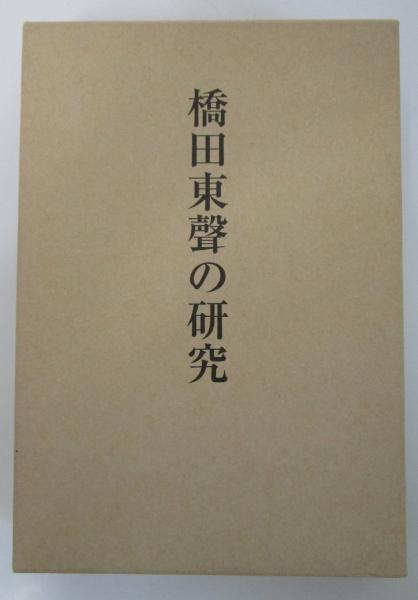 橋田東聲の研究